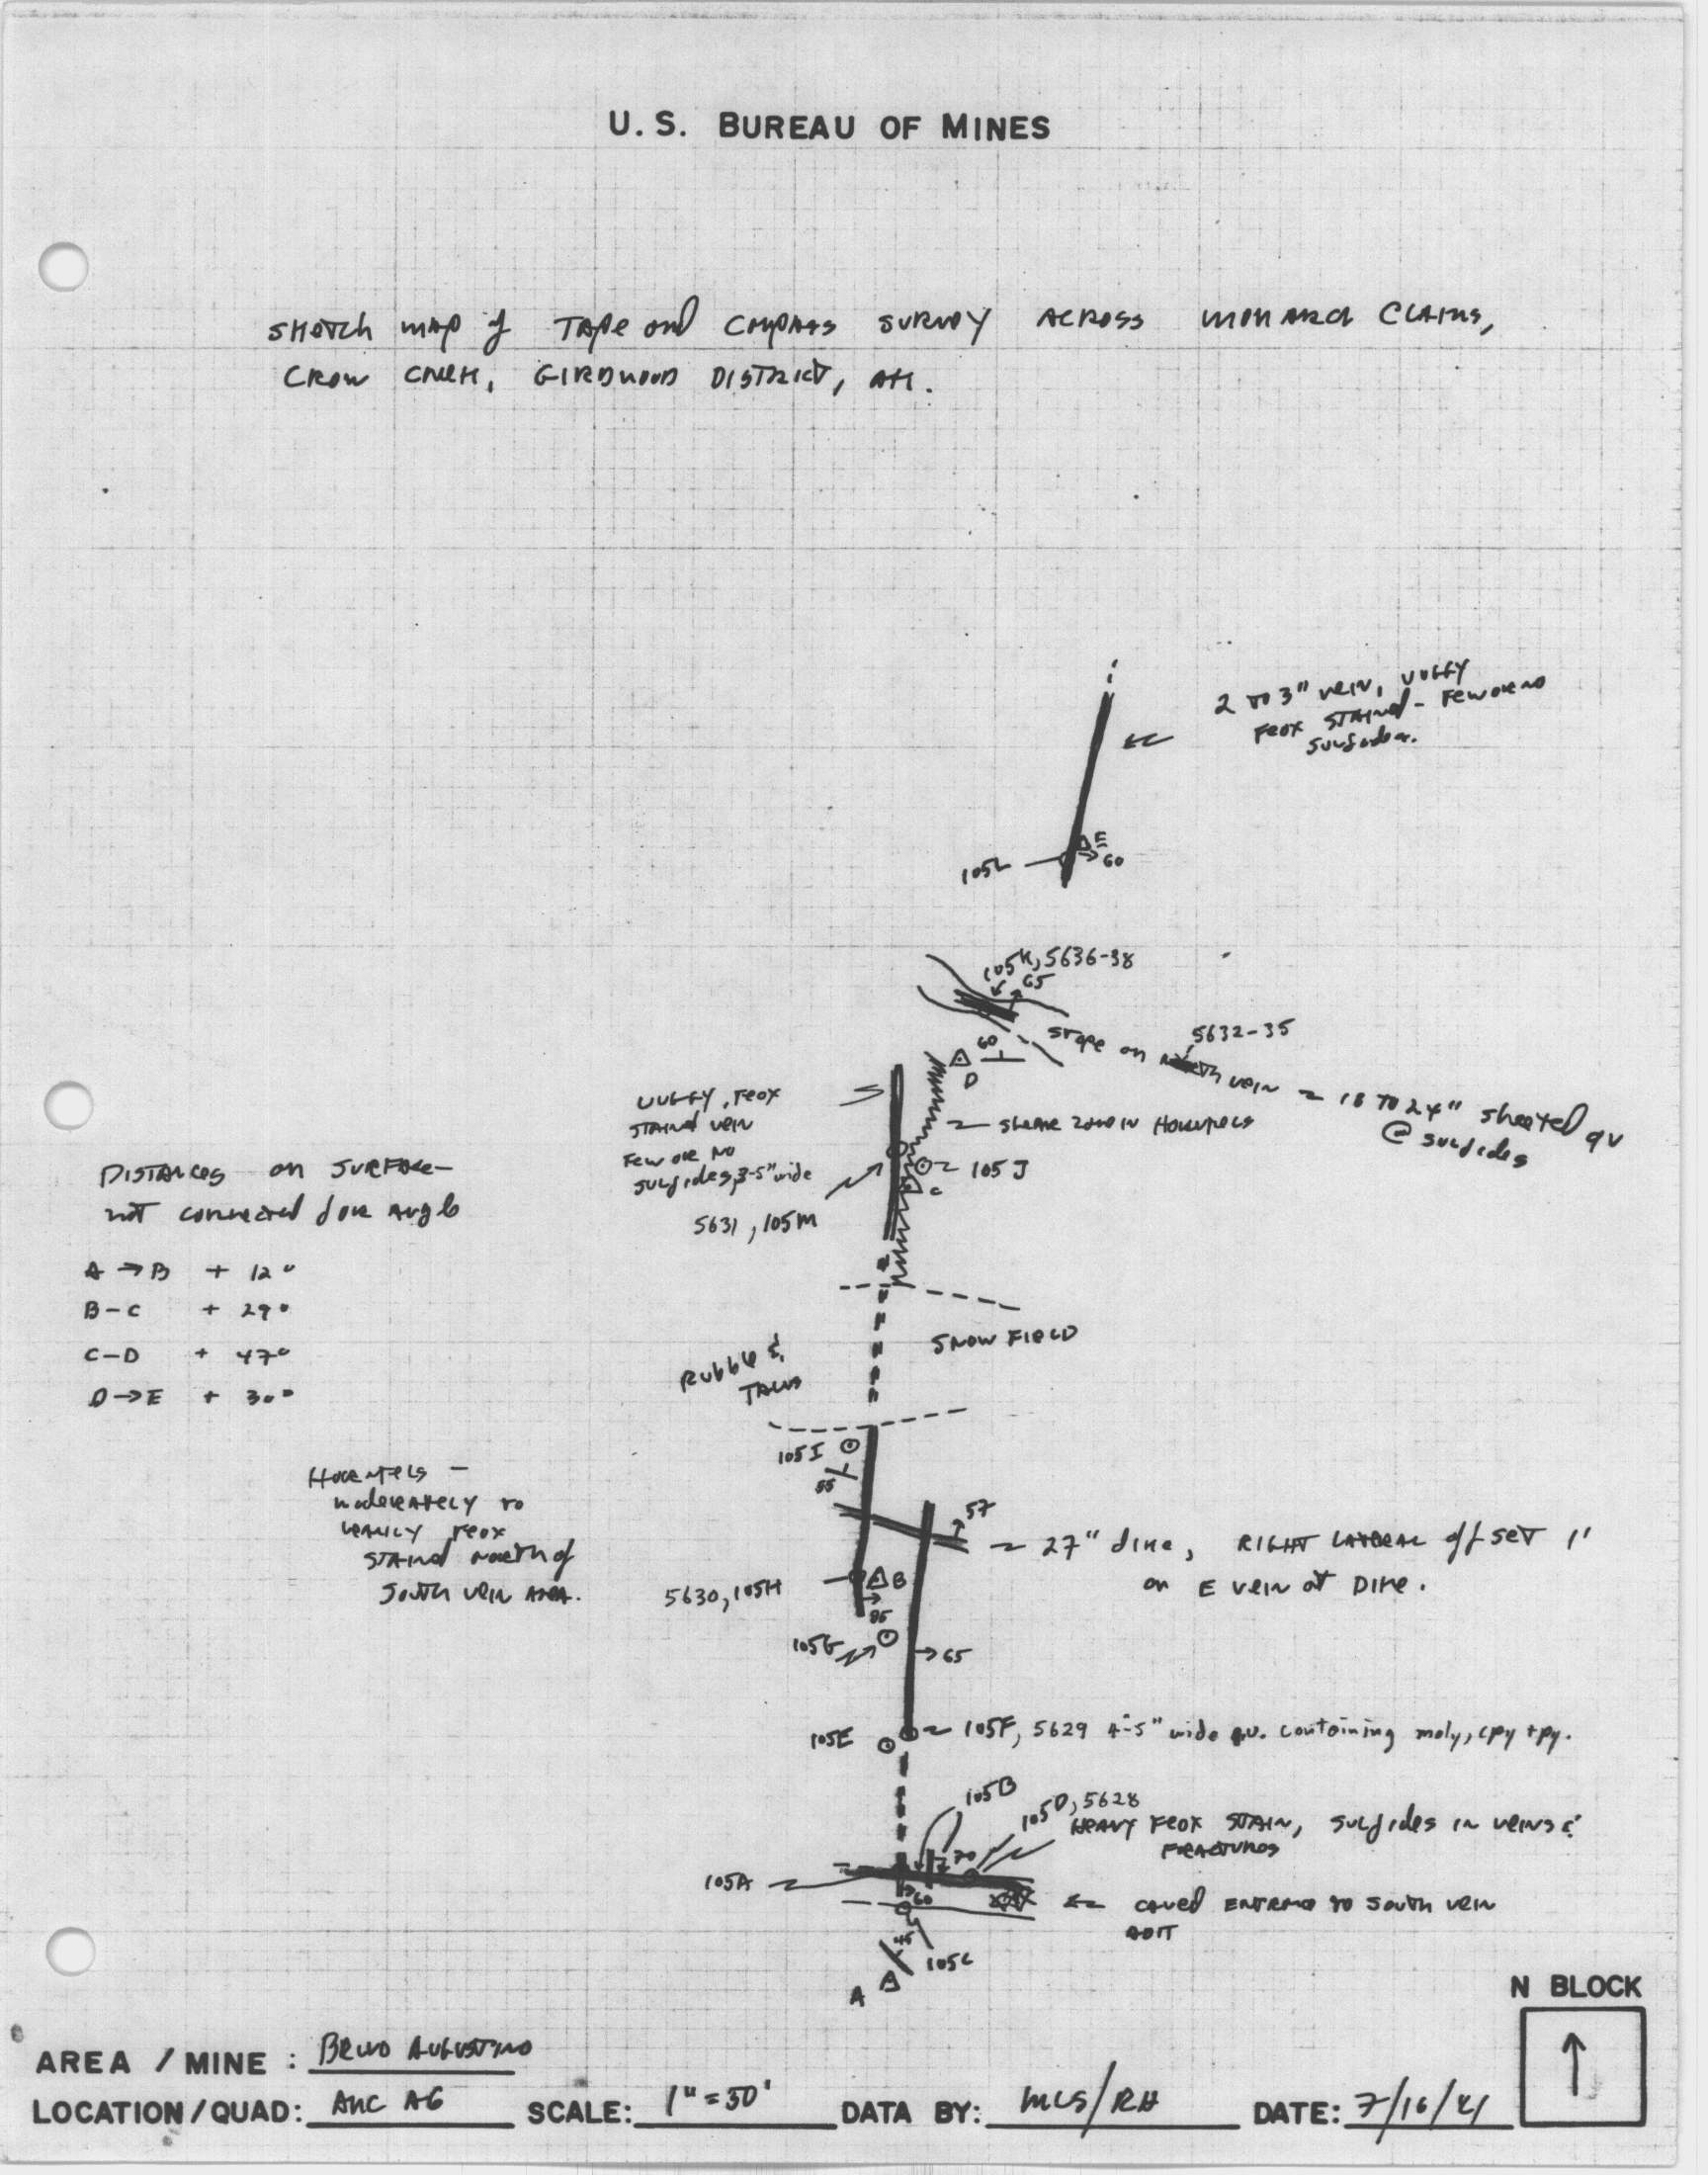 U.S. BUREAU OF MINES
SKETCH MAP of TAPE and COMPASS SURVEY ACROSS MONARCH CLAIMS,
CROW CREEK, GIRDWOOD DISTRICT, AK.
2 TO 3" VEIN, VUGGY
FEOX STAINED - FEW OR NO
SULFIDES.
E
60
105L
105K, 5636-38
65
5632-35
STOPE ON NORTH VEIN ~ 18 TO 24" SHEETED QV
@ SULFIDES
60
D
VUGGY, FEOX
STAINED VEIN
FEW OR NO
SULFIDES, 3-5" wide
SHEAR ZONE IN HORNFELS
105J
C
5631, 105M
DISTANCES ON SURFACE-
NOT CORRECTED FOR ANGLE
A → B + 12°
B - C + 29°
C - D + 47°
D → E + 30°
SNOW FIELD
RUBBLE &
TALUS
105I
55
HORNFELS -
MODERATELY TO
HEAVILY FEOX
STAINED NORTH OF
SOUTH VEIN AREA.
57
27" DIKE, RIGHT LATERAL OFFSET 1'
ON E VEIN AT DIKE.
B
5630, 105H
85
105G
65
105E
105F, 5629 4-5" wide qv. containing moly, cpy + py.
105B
105D, 5628
HEAVY FEOX STAIN, SULFIDES IN VEINS &
FRACTURES
70
105A
60
CAVED ENTRANCE TO SOUTH VEIN
ADIT
45
105C
A
N BLOCK
AREA / MINE: BRUNO AUGUSTINO
LOCATION/QUAD: ANC A6 SCALE: 1" = 50' DATA BY: MCS/RH DATE: 7/16/81